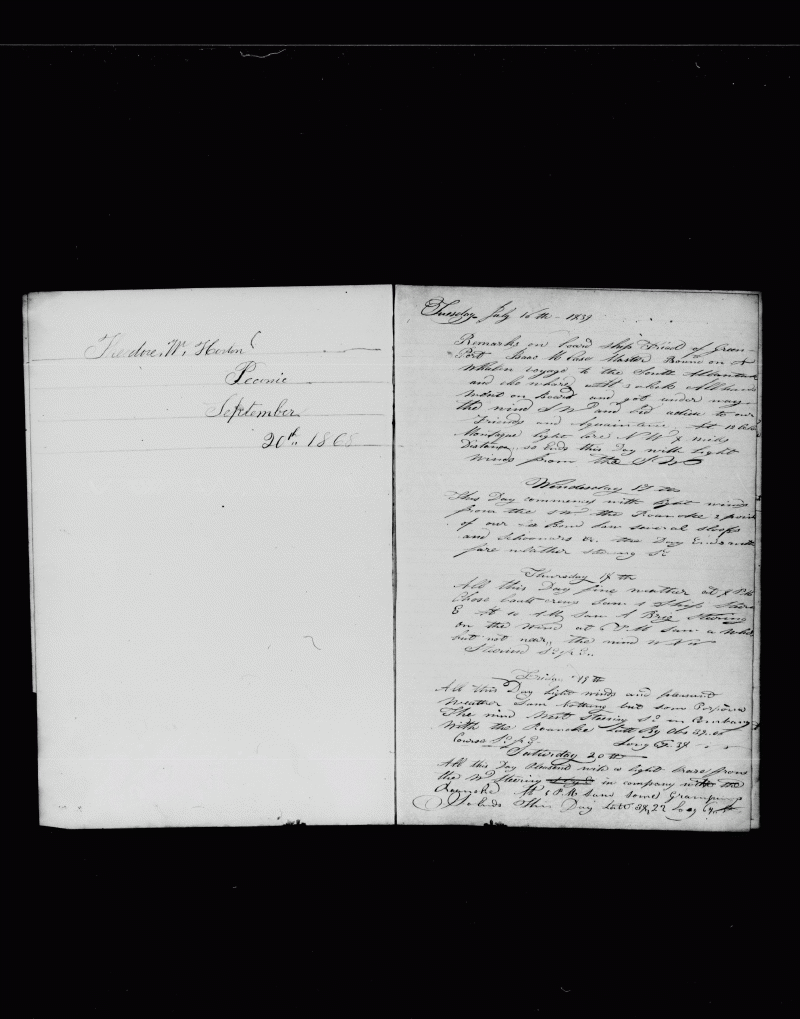 Theodore W. Horton
Peconic
September
20th 1868
Tuesday July 16th 1839
Remarks on board ship Triad of Green-
Port Isaac M Case Master Bound on A
Whalen voyage to the South Atlantick
and elswhare at 5 oclock All hands
went on board and got under way
the wind SW and bid adieu to our
Friends and Aquaintance At 12 oclock
Montague light bore NW 7 miles
Distance so Ends this Day with light
winds from the SW
Wendesday 17th
This Day commences with light winds
from the SW the Roanoke 2 points
of our Lee Bow Saw several Sloops
and Schooners &c this Day Ends with
fare weather stearing S
Thursday 18th
All this Day fine weather at 8 PM
Chose boats crews Saw a Ship
E At 10 AM Saw A Brig Stearing
on the wind at 6 P.M Saw a Whale
but not near the wind W
Stearing
Friday 19th
All this Day light winds and pleasant
weather Saw Nothing but some Porpoises
The wind West Stearing in Company
With the Roanoke Latt By Obs 39.
Course Long 67.38
Saturday 20th
All this Day Pleasant with a light breeze from
the W Stearing in company with the
Roanoke At 6 P.M. saw some Grampuses
So Ends This Day Latt 38,22 Long